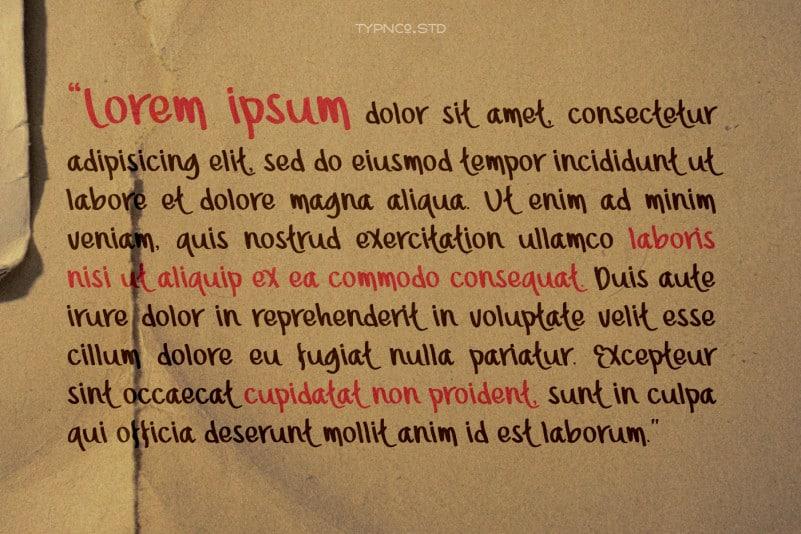 TYPNCO.STD
“Lorem ipsum dolor sit amet, consectetur
adipisicing elit, sed do eiusmod tempor incididunt ut
labore et dolore magna aliqua. Ut enim ad minim
veniam, quis nostrud exercitation ullamco laboris
nisi ut aliquip ex ea commodo consequat. Duis aute
irure dolor in reprehenderit in voluptate velit esse
cillum dolore eu fugiat nulla pariatur. Excepteur
sint occaecat cupidatat non proident, sunt in culpa
qui officia deserunt mollit anim id est laborum.”